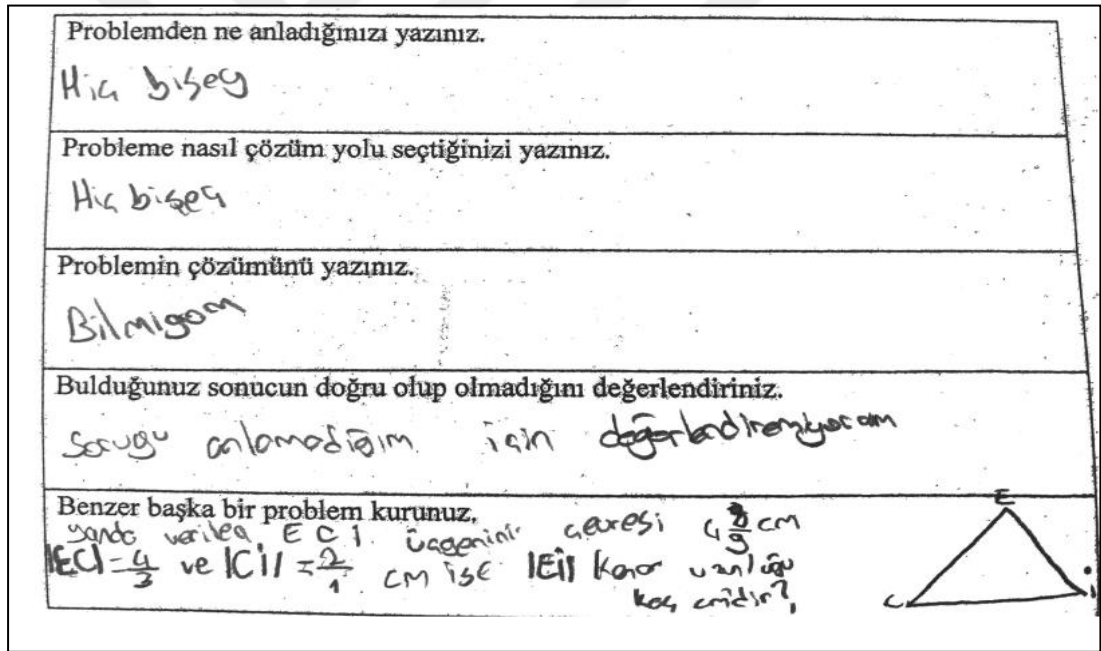 Problemden ne anladığınızı yazınız.
Hiç bişey
Probleme nasıl çözüm yolu seçtiğinizi yazınız.
Hiç bişey
Problemin çözümünü yazınız.
Bilmiyom
Bulduğunuz sonucun doğru olup olmadığını değerlendiriniz.
Soruyu anlamadiğim için değerlendiremiyorum
Benzer başka bir problem kurunuz.
yanda verilen E C İ üçgeninin çevresi 4 /9 cm
|EC|=4/3 ve |Cİ|=2/1 cm ise |Eİ| kenar uzunluğu
kaç cmdir?
E
C
İ